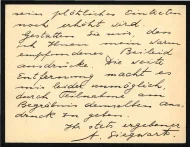 sein plötzliches Eintreten
noch erhöht wird.
Gestatten Sie mir, dass
ich Ihnen mein warm
empfundenes Beileid
ausdrücke. Die weite
Entfernung macht es
mir leider unmöglich,
durch Teilnahme am
Begräbnis demselben aus-
druck zu geben.
Ihr stets ergebener
A. Siegwart.